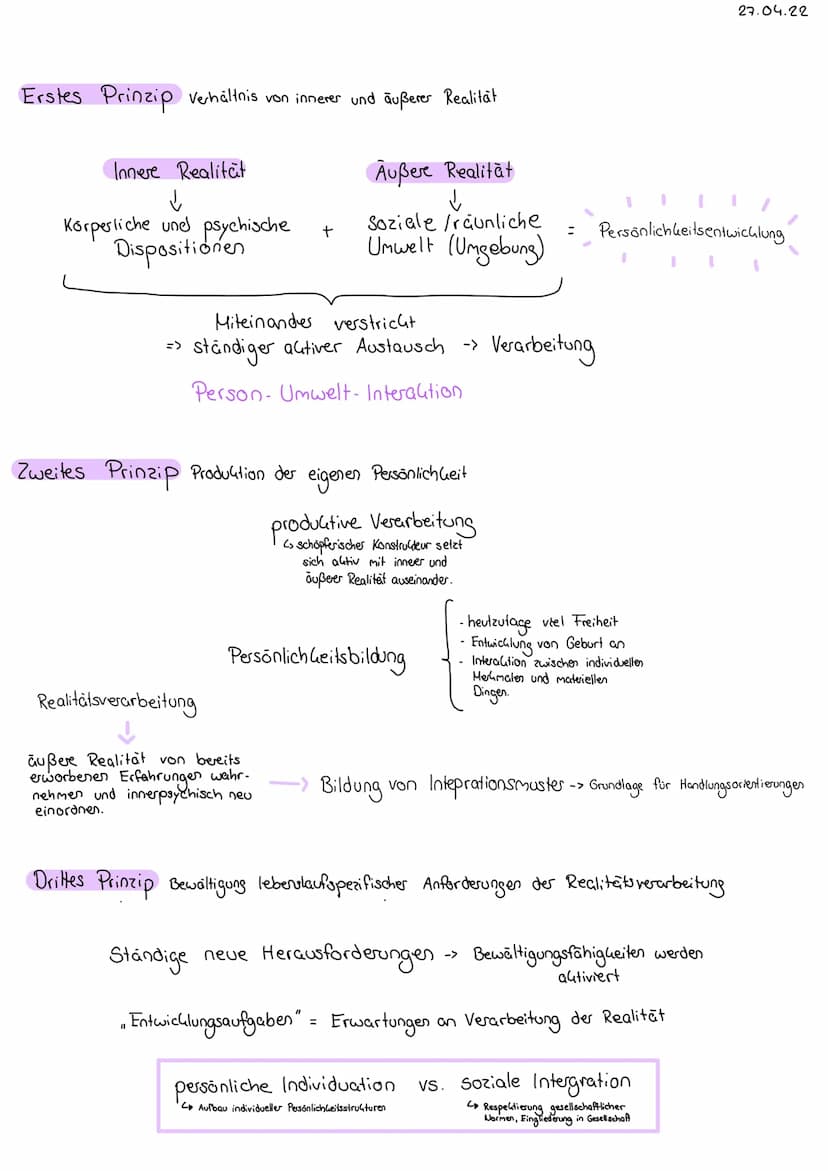 27.04.22
Erstes Prinzip Verhältnis von innerer und äußerer Realität
Innere Realität
Äußere Realität
↓
↓
Körperliche und psychische
Dispositionen
+
soziale/räunliche
Umwelt (Umgebung)
= Persönlichkeitsentwicklung
Miteinander verstrickt
=> ständiger aktiver Austausch -> Verarbeitung
Person-Umwelt-Interaktion
Zweites Prinzip Produktion der eigenen Persönlichkeit
produktive Verarbeitung
↳ schöpferischer Konstrukteur setzt
sich aktiv mit inneer und
äußerer Realität auseinander.
Persönlichkeitsbildung
- heutzutage viel Freiheit
- Entwicklung von Geburt an
- Interaktion zwischen individuellen
Merkmalen und materiellen
Dingen.
Realitätsverarbeitung
↓
äußere Realität von bereits
erworbenen Erfahrungen wahr-
nehmen und innerpsychisch neu
einordnen.
→ Bildung von Inteprationsmuster -> Grundlage für Handlungsorientierungen
Drittes Prinzip Bewältigung lebenslaufspezifischer Anforderungen der Realitätsverarbeitung
Ständige neue Herausforderungen -> Bewältigungsfähigkeiten werden
aktiviert
„Entwicklungsaufgaben" = Erwartungen an Verarbeitung der Realität
persönliche Individuation vs. soziale Intergration
↳ Aufbau individueller Persönlichkeitsstrukturen
↳ Respektierung gesellschaftlicher
Normen, Eingliederung in Gesellschaft